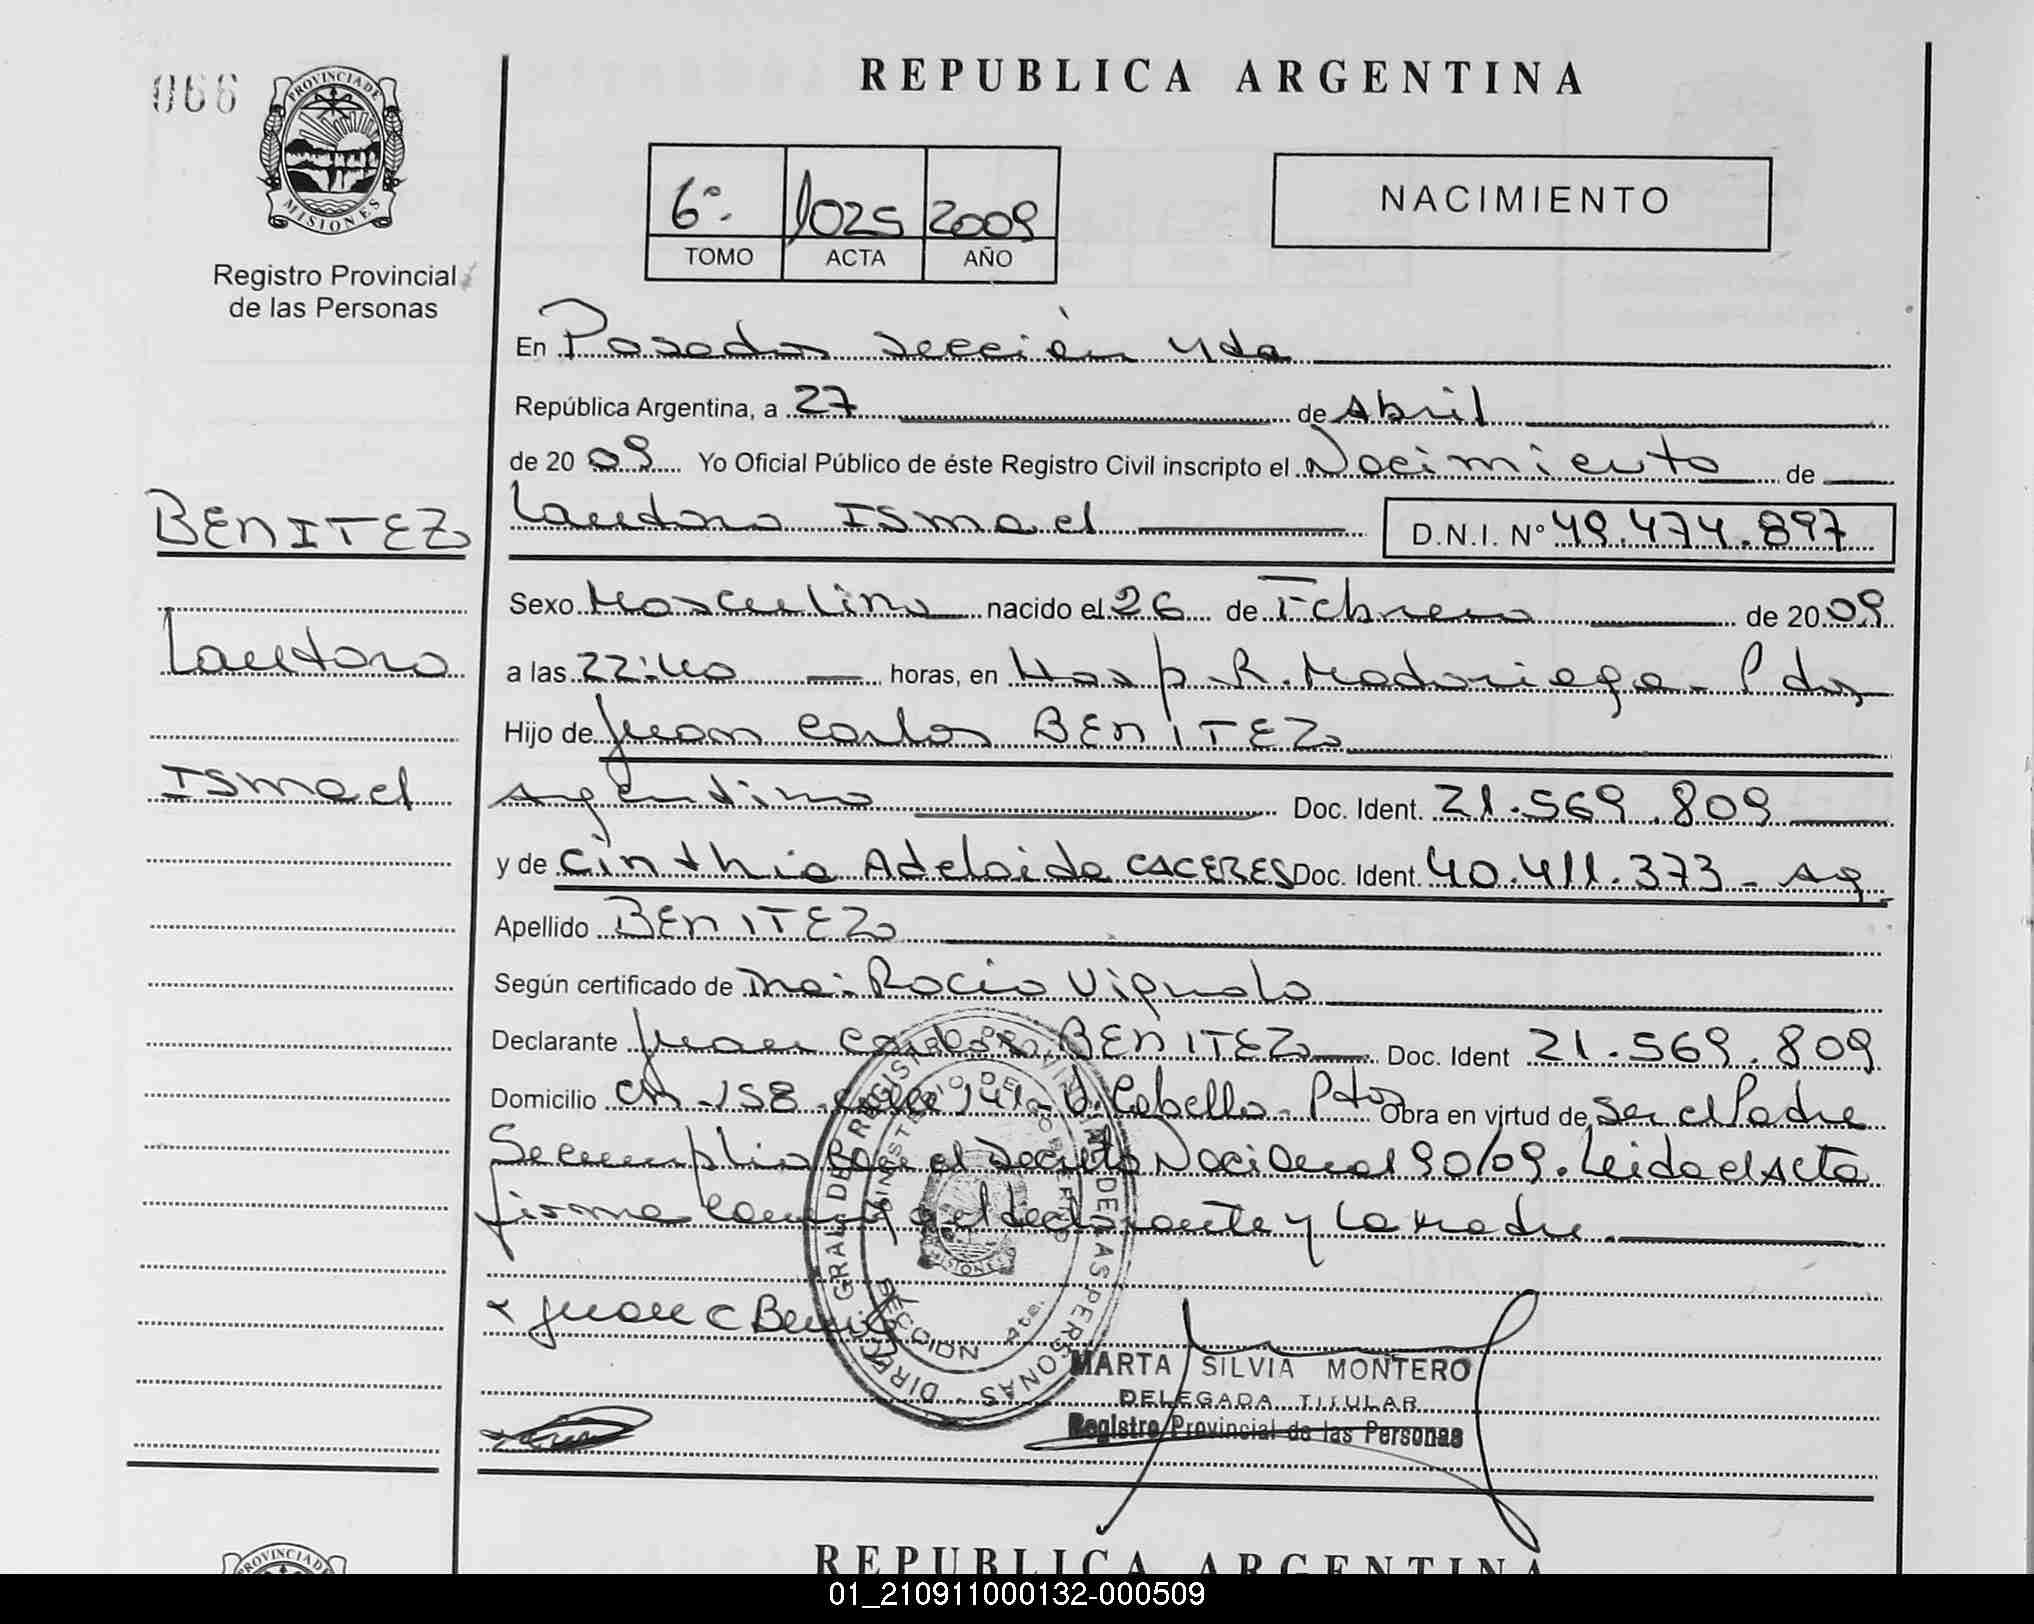 066
PROVINCIA DE
MISIONES
Registro Provincial
de las Personas
REPUBLICA ARGENTINA
6º. 1025 2009
TOMO ACTA AÑO
NACIMIENTO
En Posadas Sección 4ta
República Argentina, a 27 de Abril
de 20 09 Yo Oficial Público de éste Registro Civil inscripto el Nacimiento de
BENITEZ
Lautaro Ismael D.N.I. Nº 49.474.897
Sexo Masculino nacido el 26 de Febrero de 20 09
Lautaro
a las 22:40 horas, en Hosp. R. Madariaga - Pdas
Hijo de Juan Carlos BENITEZ
Ismael
Argentino Doc. Ident. 21.569.809
y de Cinthia Adelaida CACERES Doc. Ident. 40.411.373 - Ag.
Apellido BENITEZ
Según certificado de Dra. Rocio Vignolo
Declarante Juan Carlos BENITEZ Doc. Ident 21.569.809
Domicilio CH-158 - Calle 141 - Cabello - Pdas Obra en virtud de Ser el Padre
Se cumplio con el Decreto Nacional 90/09. Leida el Acta
firma conmigo el declarante y la madre.
Juan C Benitez
DIREC. GRAL DEL REGISTRO PROVINCIAL DE LAS PERSONAS
MINISTERIO DE GOBIERNO
MISIONES
SECCION 4ta.
MARTA SILVIA MONTERO
DELEGADA TITULAR
Registro Provincial de las Personas
PROVINCIA DE
REPUBLICA ARGENTINA
01_210911000132-000509